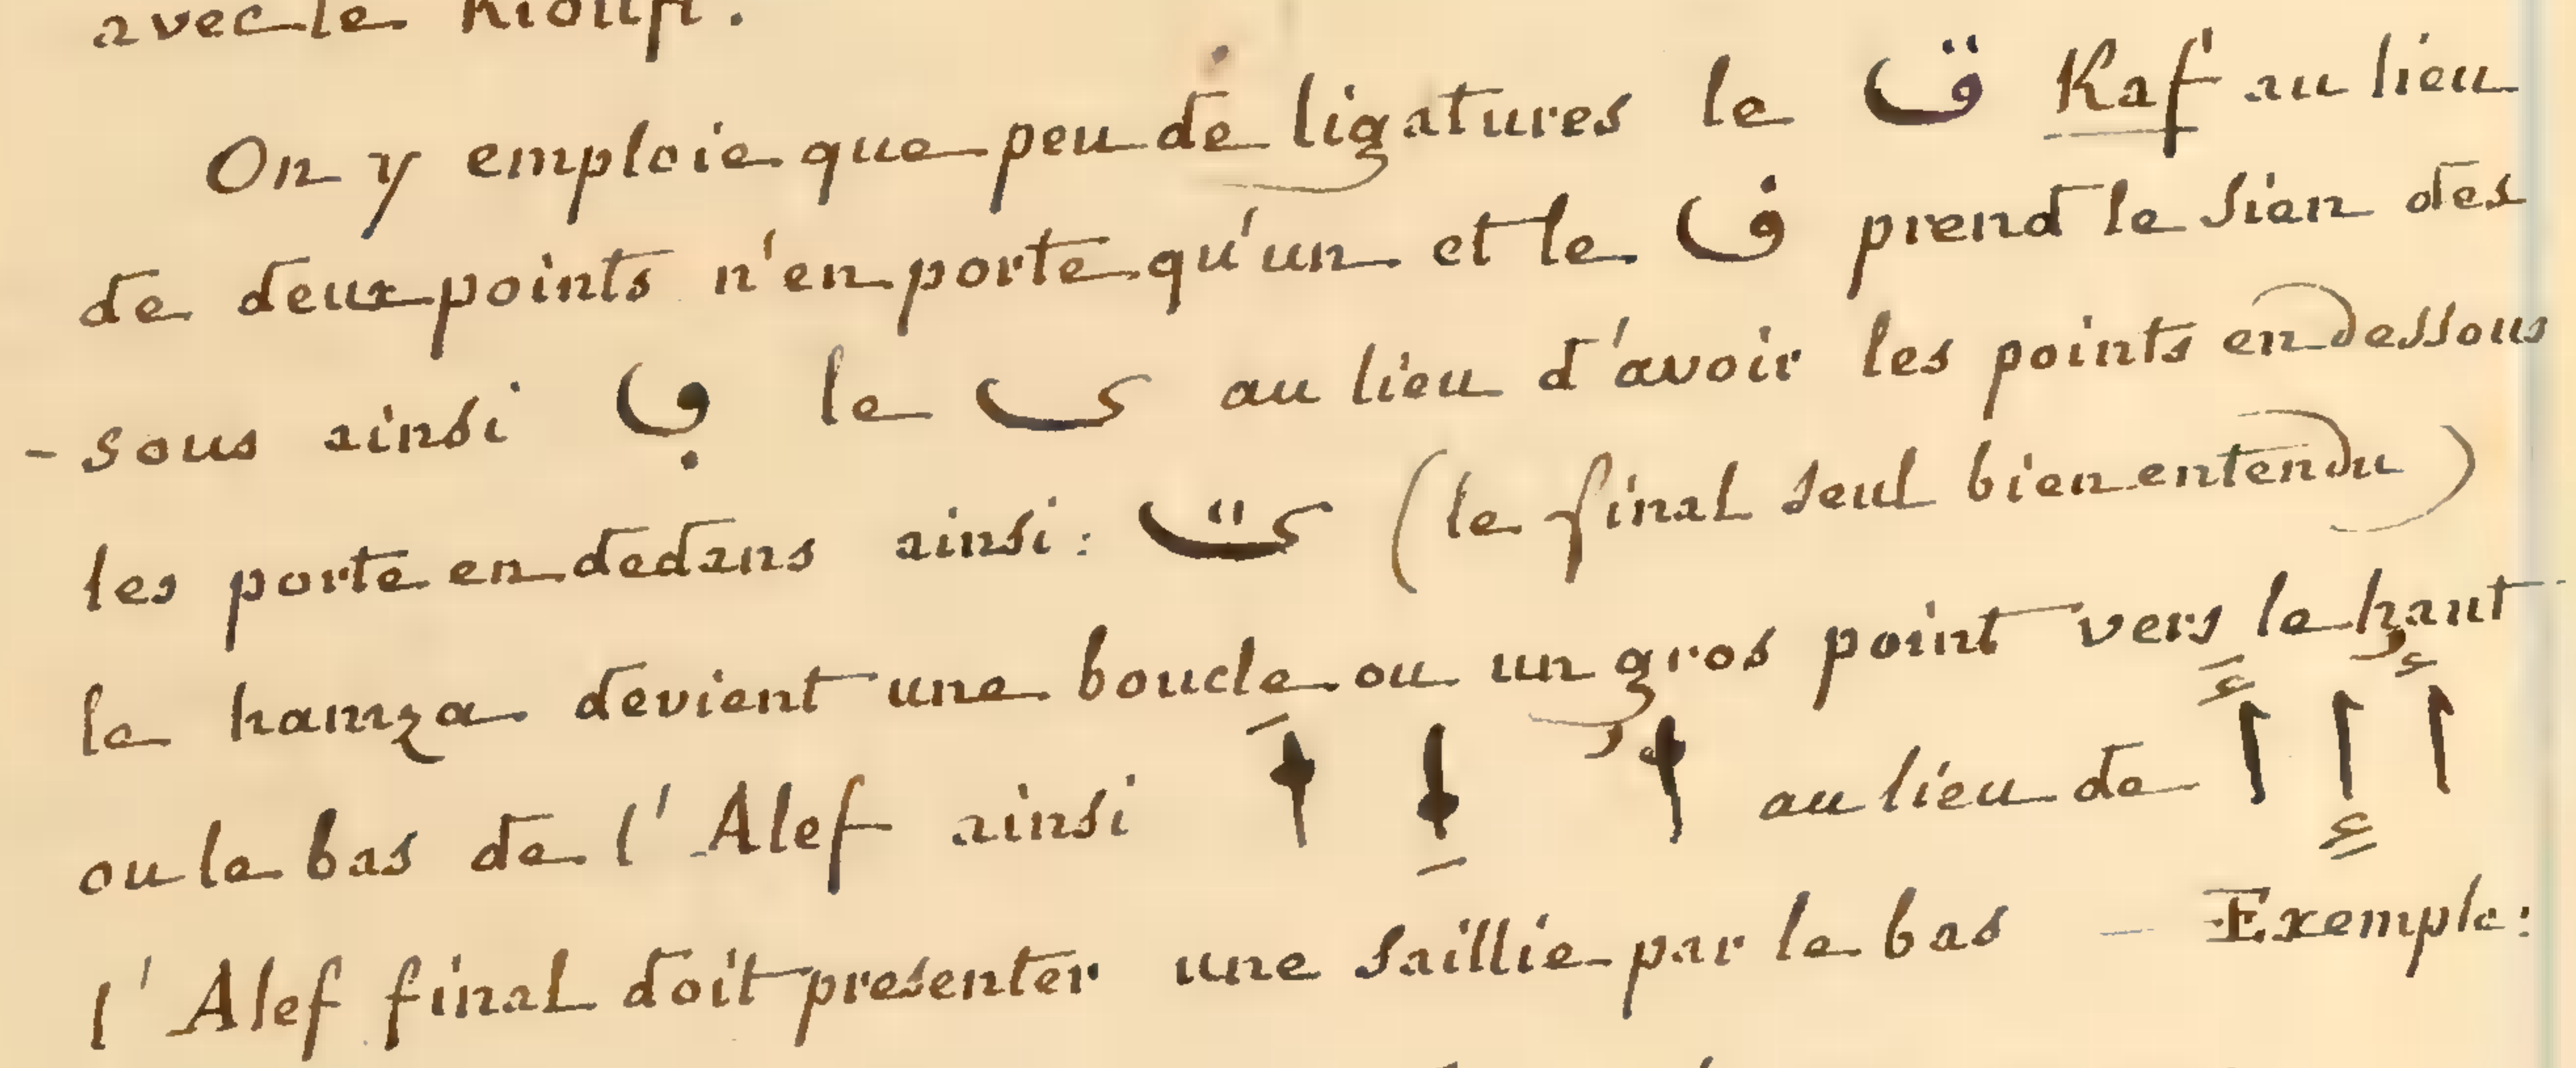 avec le Kioufi.
On y emploie que peu de ligatures le ق Kaf au lieu
de deux points n'en porte qu'un et le ف prend le sien des
- sous ainsi ڢ le ى au lieu d'avoir les points en dessous
les porte en dedans ainsi : (le final seul bien entendu)
le hamza devient une boucle ou un gros point vers le haut
ou le bas de l'Alef ainsi au lieu de أَ إِ أُ
l'Alef final doit presenter une saillie par le bas - Exemple :